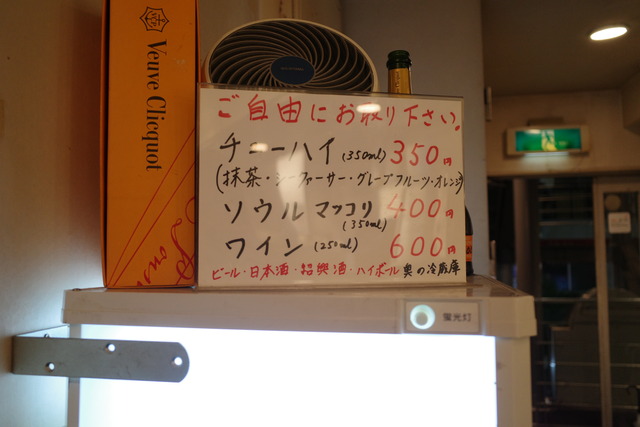 Veuve Clicquot
ご自由にお取り下さい。
チューハイ(350ml) 350円
(抹茶・シークァーサー・グレープフルーツ・オレンジ)
ソウルマッコリ 400円
(350ml)
ワイン(250ml) 600円
ビール・日本酒・紹興酒・ハイボール 奥の冷蔵庫
蛍光灯